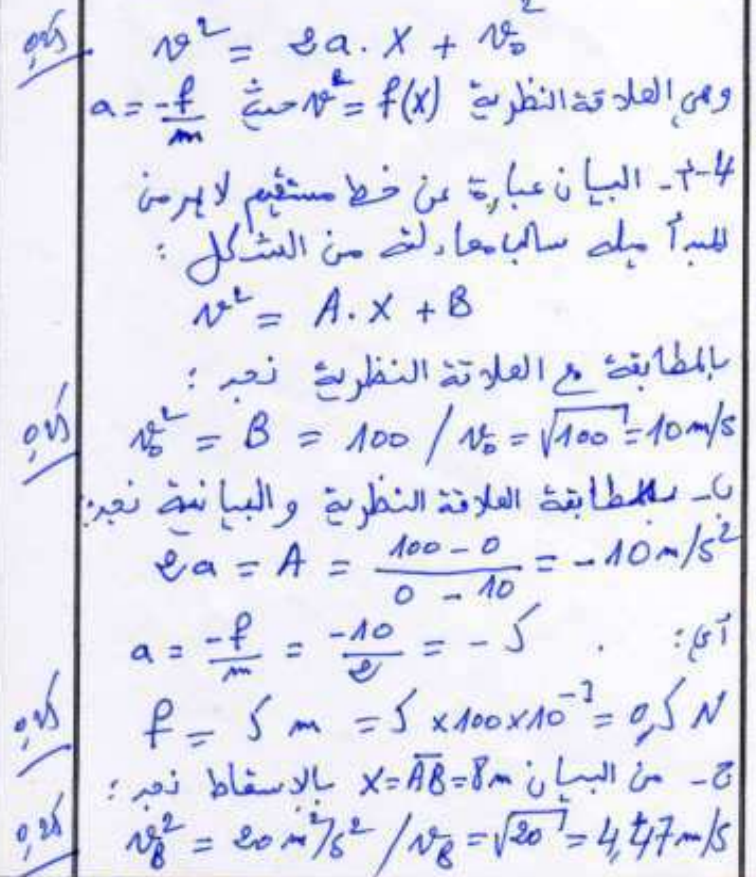 0,25 v² = 2a. X + v₀²
وهي العلاقة النظرية v² = f(X) حيث a = -f/m
4-أ- البيان عبارة عن خط مستقيم لا يمر من
المبدأ ميله سالب معادلته من الشكل :
v² = A. X + B
بالمطابقة مع العلاقة النظرية نجد :
0,25 v₀² = B = 100 / v₀ = √100 = 10 m/s
ب- بمطابقة العلاقة النظرية والبيانية نجد:
2a = A = (100 - 0)/(0 - 10) = -10 m/s²
أي: a = -f/m = -10/2 = -5 .
0,25 f = 5 m = 5 x 100 x 10⁻³ = 0,5 N
ج- من البيان X = AB = 8m بالاسقاط نجد :
0,25 v_B² = 20 m²/s² / v_B = √20 = 4,47 m/s